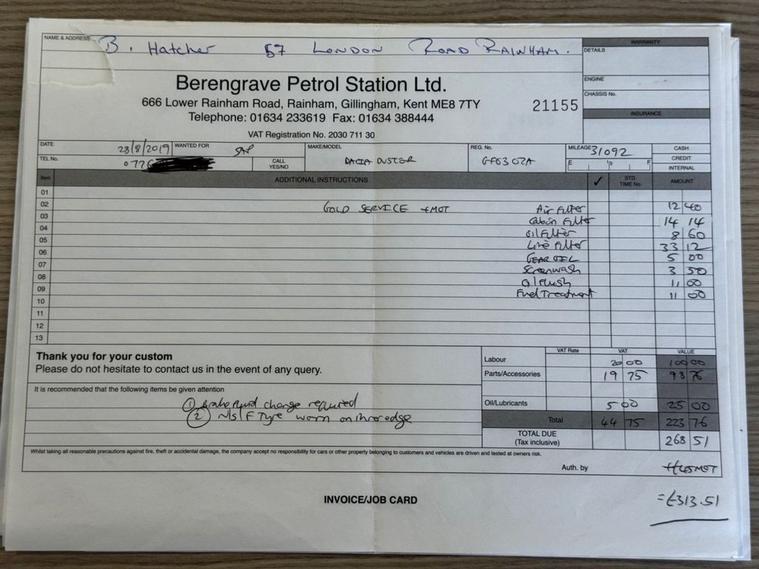 NAME & ADDRESS B. Hatcher 57 LONDON ROAD RAINHAM.
WARRANTY
DETAILS
ENGINE
CHASSIS No.
INSURANCE
Berengrave Petrol Station Ltd.
666 Lower Rainham Road, Rainham, Gillingham, Kent ME8 7TY
Telephone: 01634 233619 Fax: 01634 388444
21155
VAT Registration No. 2030 711 30
DATE 23/8/2019 WANTED FOR MAKE/MODEL DACIA DUSTER REG. No. MILEAGE 31092 CASH
TEL No. CALL YES/NO E ½ F CREDIT
INTERNAL
Item ADDITIONAL INSTRUCTIONS ✓ STD. TIME No. AMOUNT
01
02 GOLD SERVICE + MOT Air Filter 12 40
03 Cabin Filter 14 14
04 Oil Filter 8 60
05 Filter 33 12
06 GEAR OIL 5 00
07 Screenwash 3 50
08 Oil flush 11 00
09 Fuel Treatment 11 00
10
11
12
13
Thank you for your custom
Please do not hesitate to contact us in the event of any query.
It is recommended that the following items be given attention
① Brake fluid change required
② N/S/F Tyre worn on inner edge
VAT Rate VAT VALUE
Labour 20 00 100 00
Parts/Accessories 19 75 98 76
Oil/Lubricants 5 00 25 00
Total 44 75 223 76
TOTAL DUE (Tax inclusive) 268 51
Whilst taking all reasonable precautions against fire, theft or accidental damage, the company accept no responsibility for cars or other property belonging to customers and vehicles are driven and tested at owners risk.
Auth. by +£45 MOT
INVOICE/JOB CARD
=£313.51